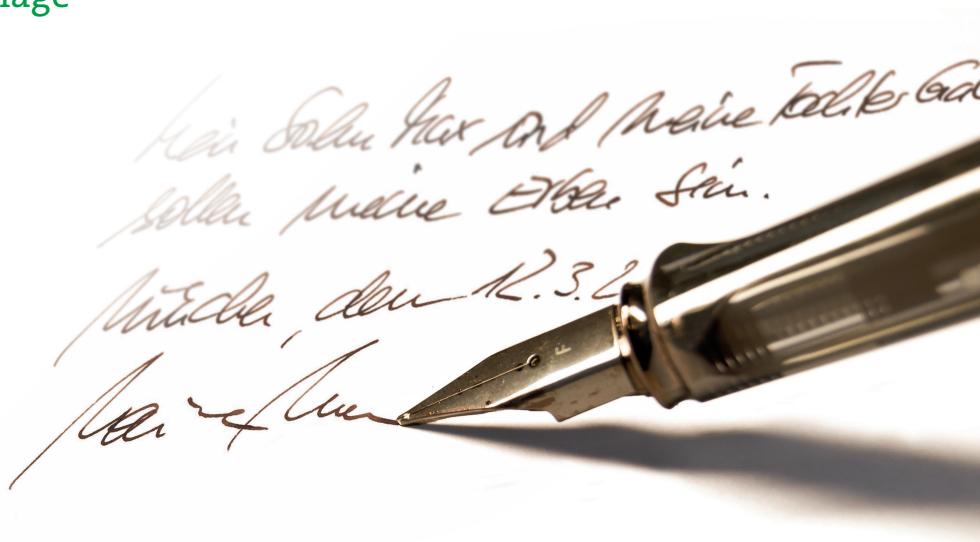 lage
Mein Sohn Max und meine Tochter
sollen meine Erben sein.
München, den 12.3.2
F